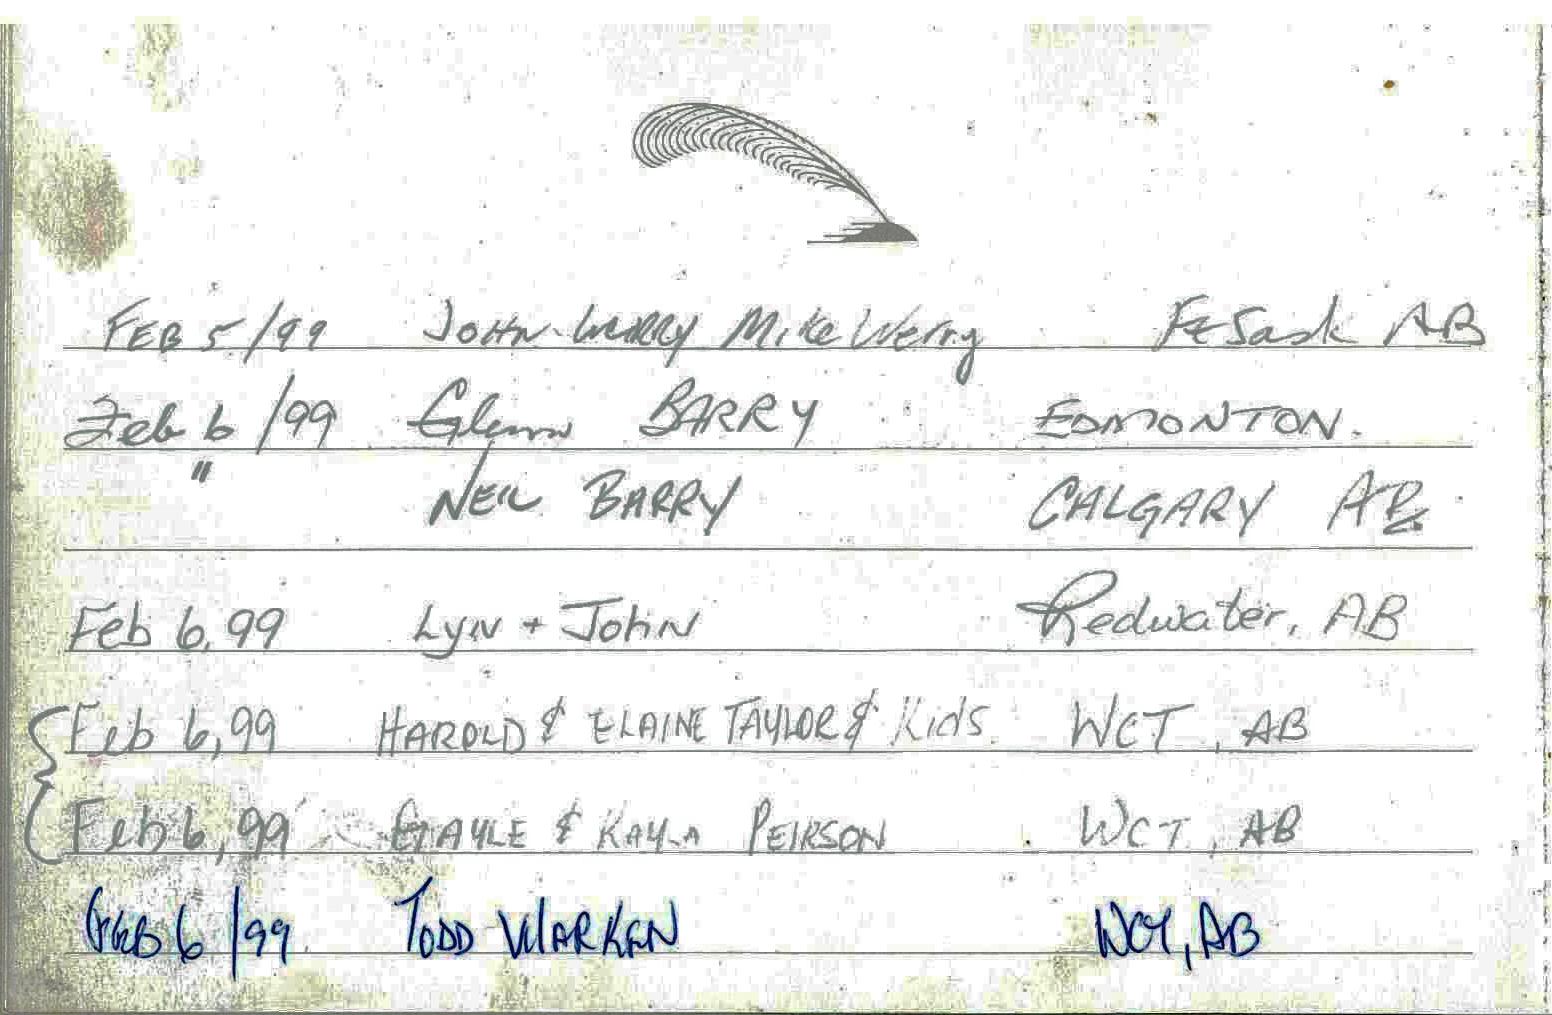 FEB 5/99 JOHN WERRY Mike Werry Ft Sask AB
Feb 6/99 Glenn BARRY EDMONTON.
" NEIL BARRY CALGARY AB
Feb 6, 99 Lyn + John Redwater, AB
Feb 6, 99 HAROLD & ELAINE TAYLOR & Kids WCT, AB
Feb 6, 99 GAYLE & KAYLA PEIRSON WCT, AB
FEB 6/99 TODD WARREN AB